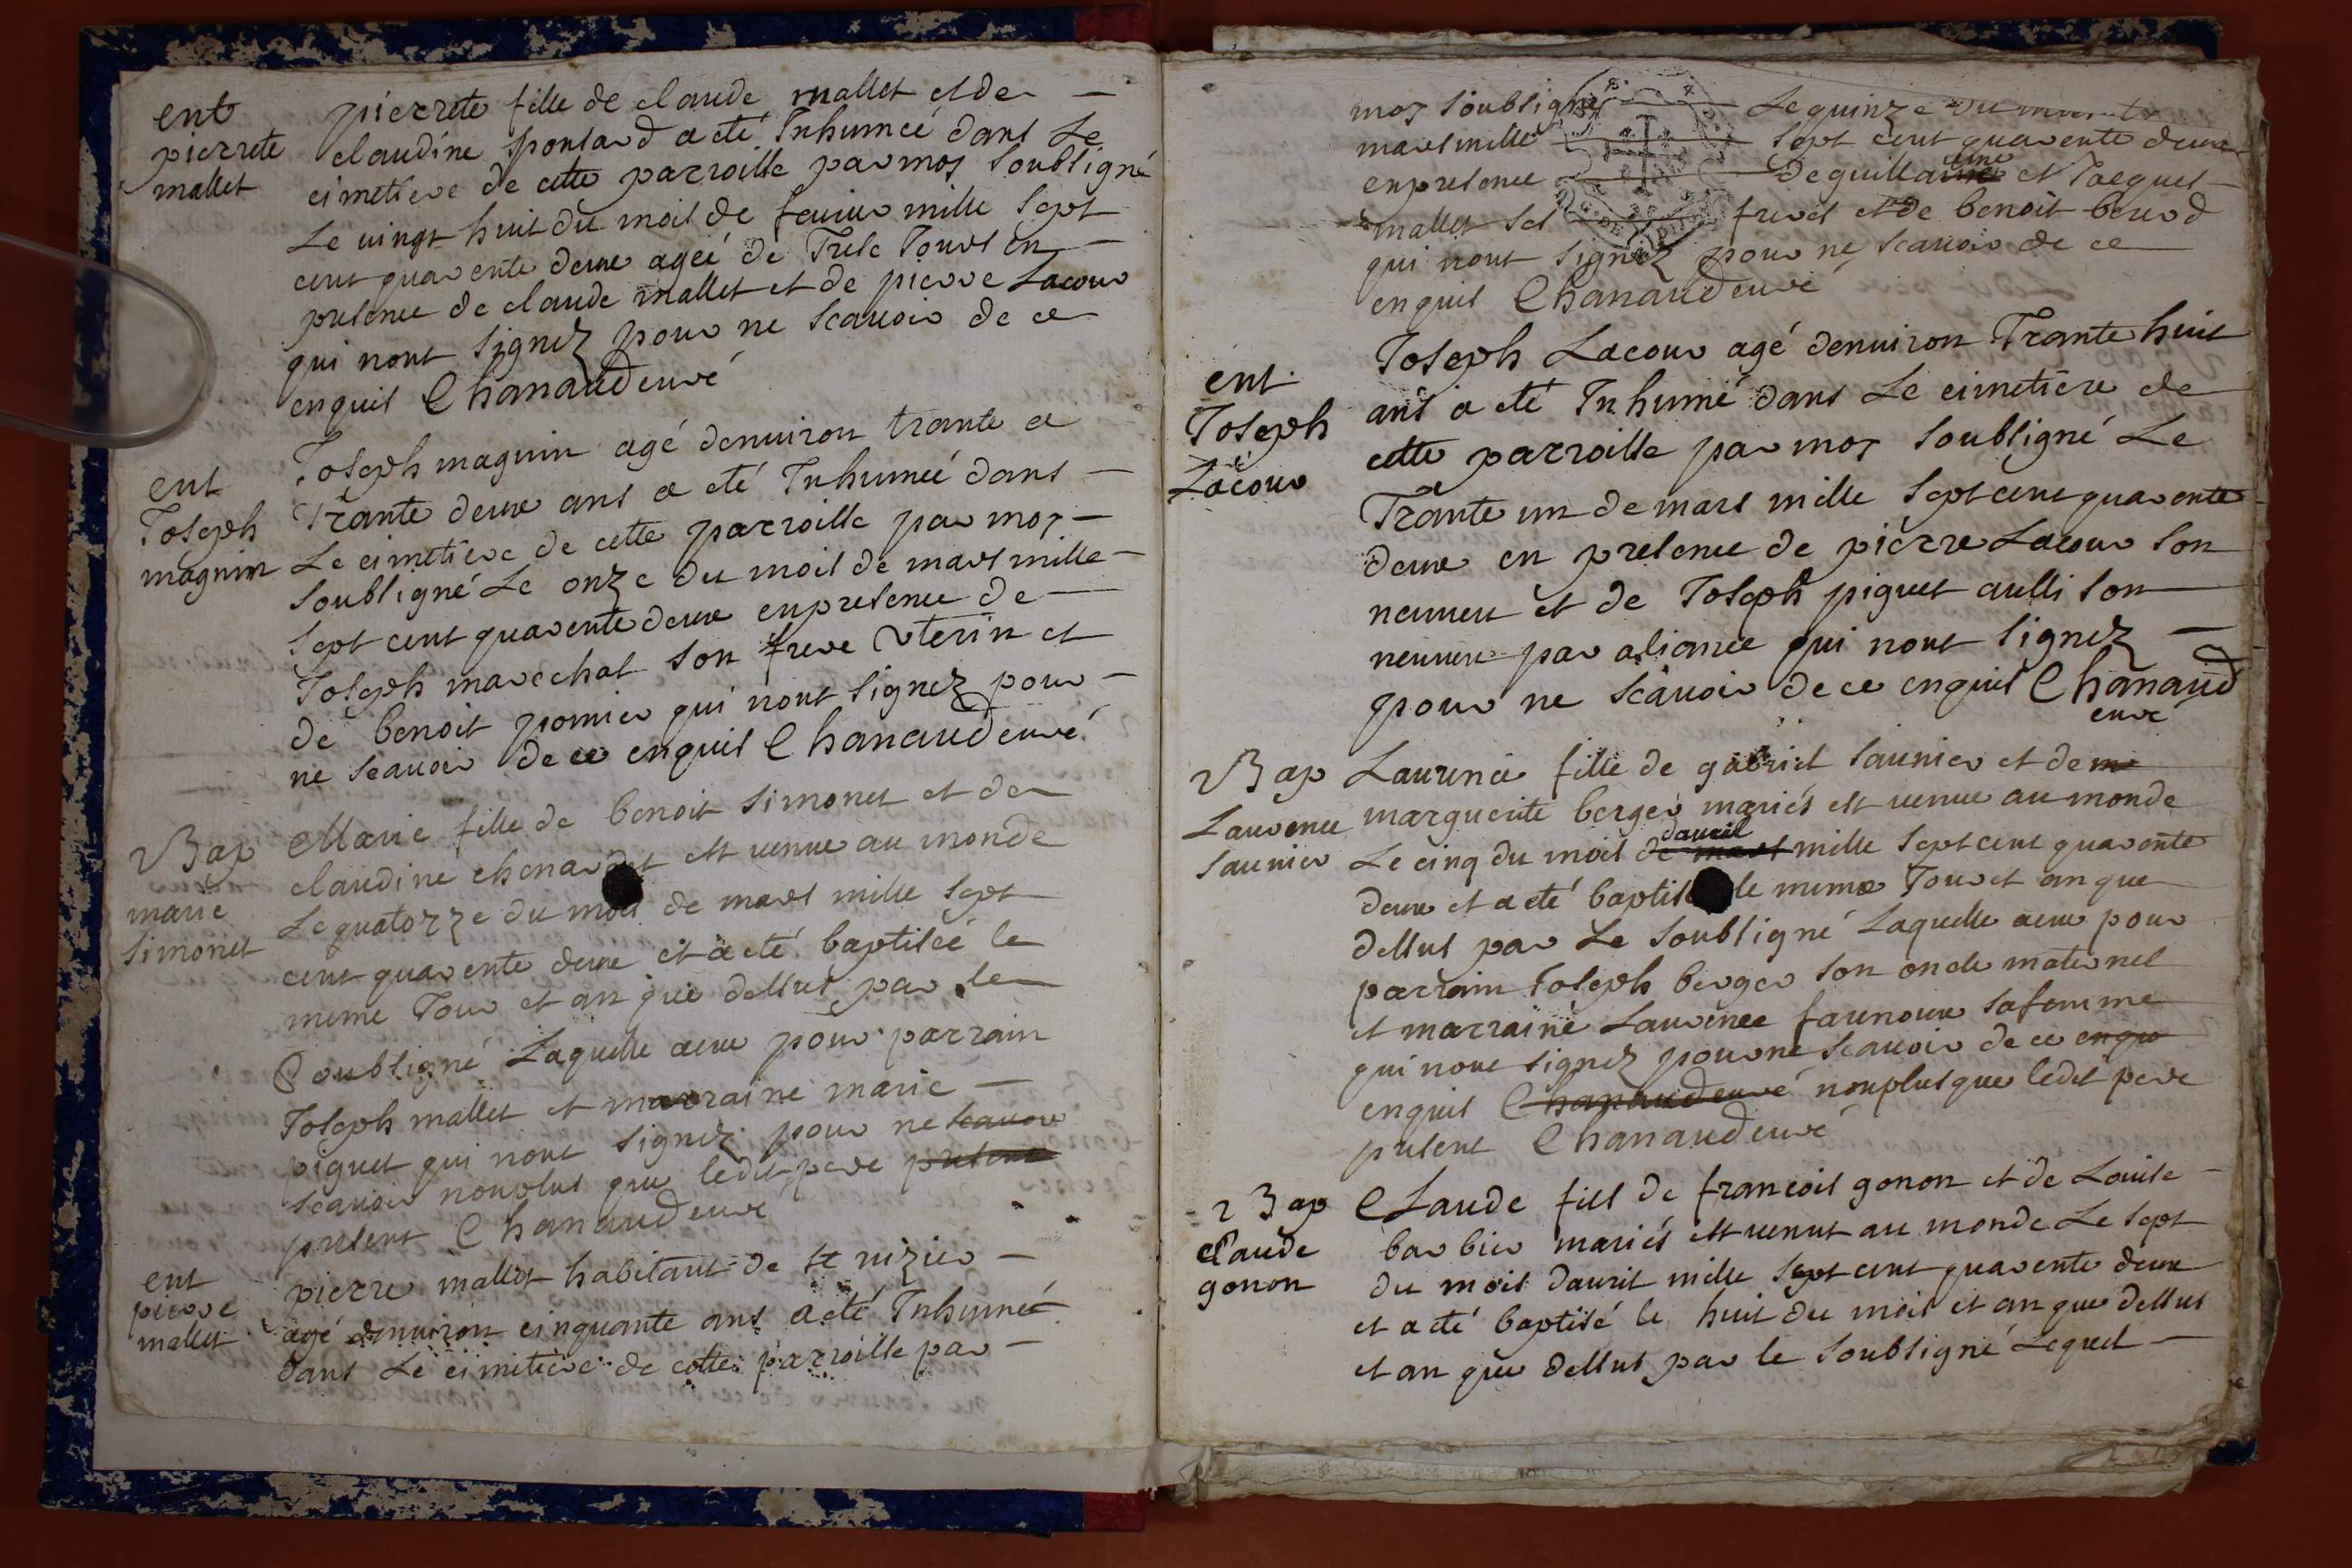 ent
pierrete
mallet
pierrete fille de claude mallet et de
claudine ponsard a eté Inhumeé dans Le
cimetiere de cette parroisse par moy soubsigné
Le uingt huit du mois de feurier mille sept
cent quarente deux ageé de Trese Jours en
presence de claude mallet et de pierre Lacour
qui nont signez pour ne scauoir de ce
enquis Chanaud curé
ent
Joseph
magnin
Joseph magnin agé denuiron trante a
Trante deux ans a eté Inhumeé dans
Le cimetiere de cette parroisse par moy
soubsigné Le onze du mois de mars mille
sept cent quarente deux en presence de
Joseph marechal son frere Vterin et
de benoit pomier qui nont signez pour
ne scauoir de ce enquis Chanaud curé
Bap
marie
simonet
Marie fille de benoit simonet et de
claudine chenardet est uenue au monde
Le quatorze du mois de mars mille sept
cent quarente deux et a eté baptiseé le
meme Jour et an que dessus par le
Soubsigné Laquelle a eue pour parrain
Joseph mallet et marraine marie
piguet qui nont signez pour ne scauoir
scauoir nonplus que ledit pere presence
present Chanaud curé
ent
pierre
mallet
pierre mallet habitant de st nizier
agé denuiron cinquante ans a eté Inhumeé
dans Le cimetiere de cette parroisse par
moy soubsigné Le quinze du
mars mille sept cent quarente deux
en presence de guillaume et Jacques
mallet ses freres et de benoit beroud
qui nont signez pour ne scauoir de ce
enquis Chanaud curé
ent
Joseph
Lacour
Joseph Lacour agé denuiron Trante huit
ans a eté Inhumé dans Le cimetiere de
cette parroisse par moy soubsigné Le
Trante un de mars mille sept cent quarente
deux en presence de pierre Lacour son
neuueu et de Joseph piguet aussi son
neuueu par aliance qui nont signez
pour ne scauoir de ce enquis Chanaud
curé
Bap
Laurence
saunier
Laurence fille de gabriel saunier et de
marguerite berger mariés est uenue au monde
Le cinq du mois de mars dauril mille sept cent quarente
deux et a eté baptise le meme Jour et an que
dessus par Le soubsigné Laquelle a eue pour
parrain Joseph berger son oncle maternel
et marraine Laurence faunoux sa femme
qui nont signez pour ne scauoir de ce enqu
enquis Chanaud curé nonplus que ledit pere
present Chanaud curé
Bap
Claude
gonon
Claude fils de francois gonon et de Louise
barbier mariés est uenut au monde Le sept
du mois dauril mille sept cent quarente deux
et a eté baptisé le huit du mois et an que dessus
et an que dessus par le soubsigné Lequel